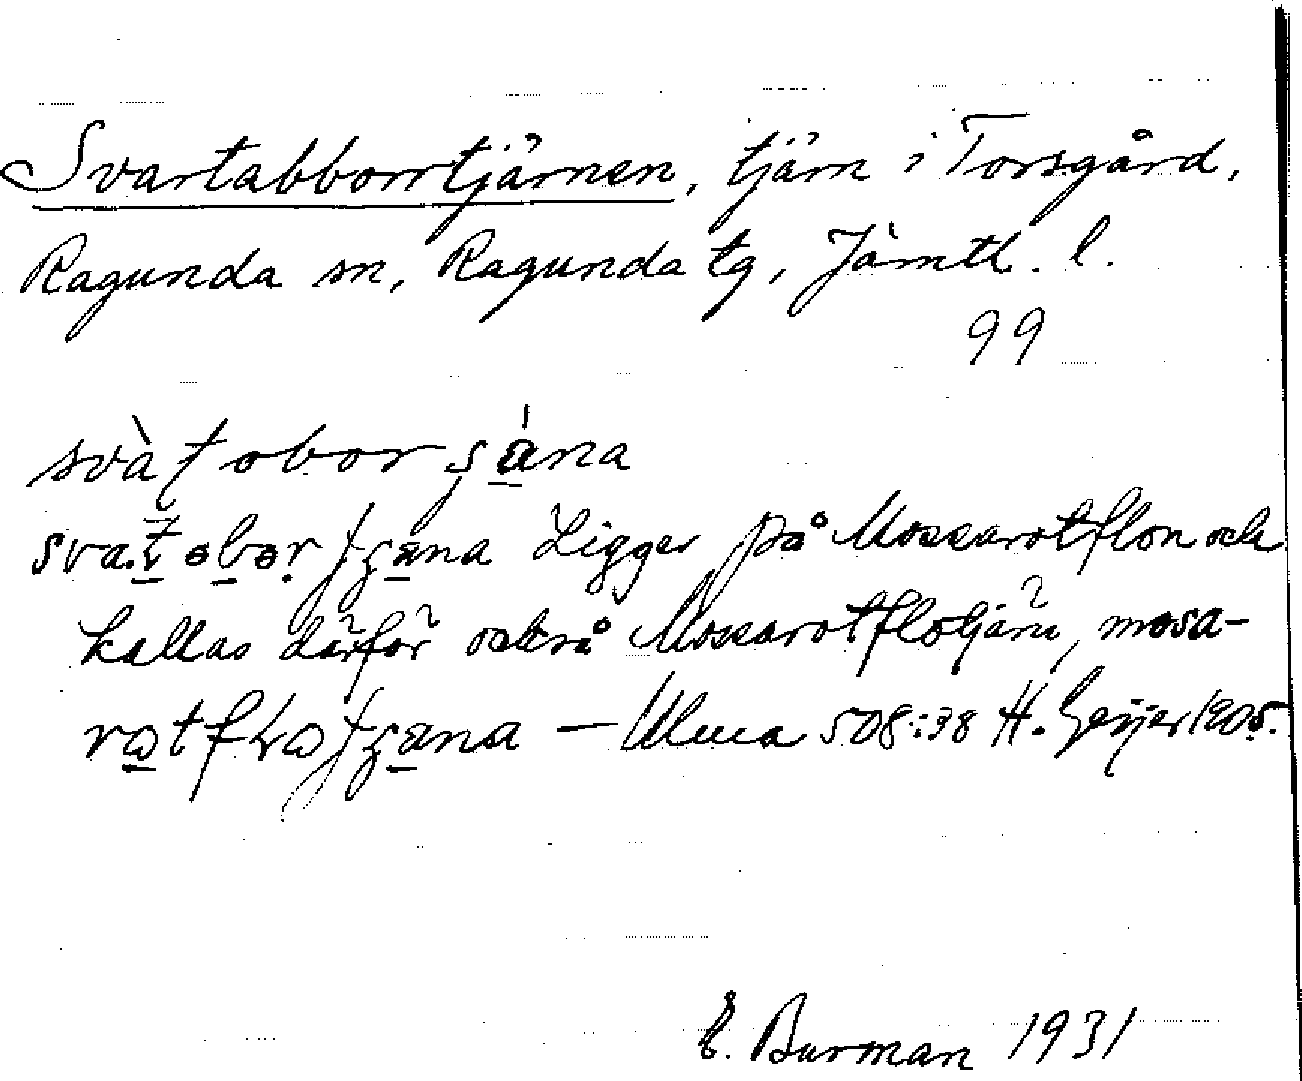 Svartabborrtjärnen, tjärn i Torsgård,
Ragunda sn, Ragunda tg, Jämtl. l.
99
svàtoborʂána
Ligger på Mossarotflon och
kallas därför också Mossarotflotjärn, mosa-
— Ulma 508:38 H. Geijer 1905.
E. Burman 1931